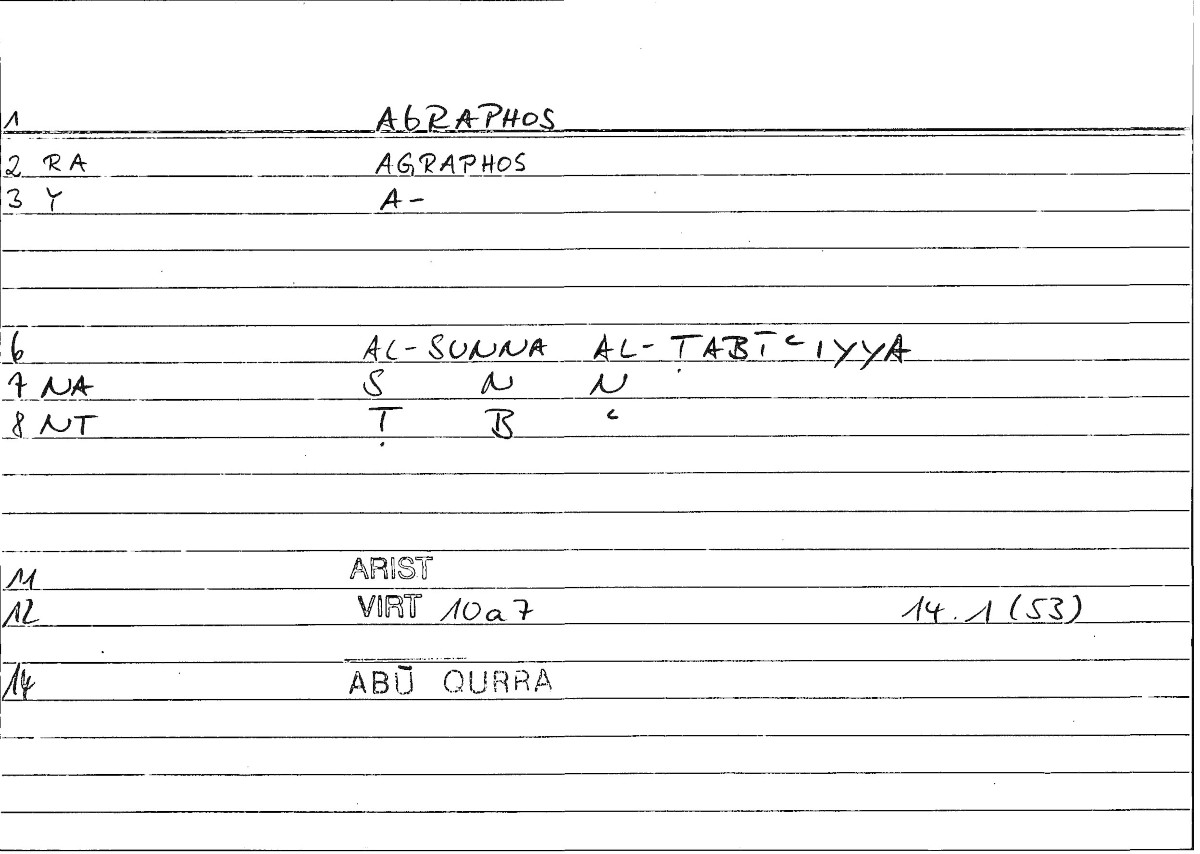 1 AGRAPHOS
2 RA AGRAPHOS
3 Y A-
6 AL-SUNNA AL-ṬABĪʿIYYA
7 NA S N N
8 NT Ṭ B ʿ
11 ARIST
12 VIRT 10a7 14.1 (53)
14 ABŪ QURRA